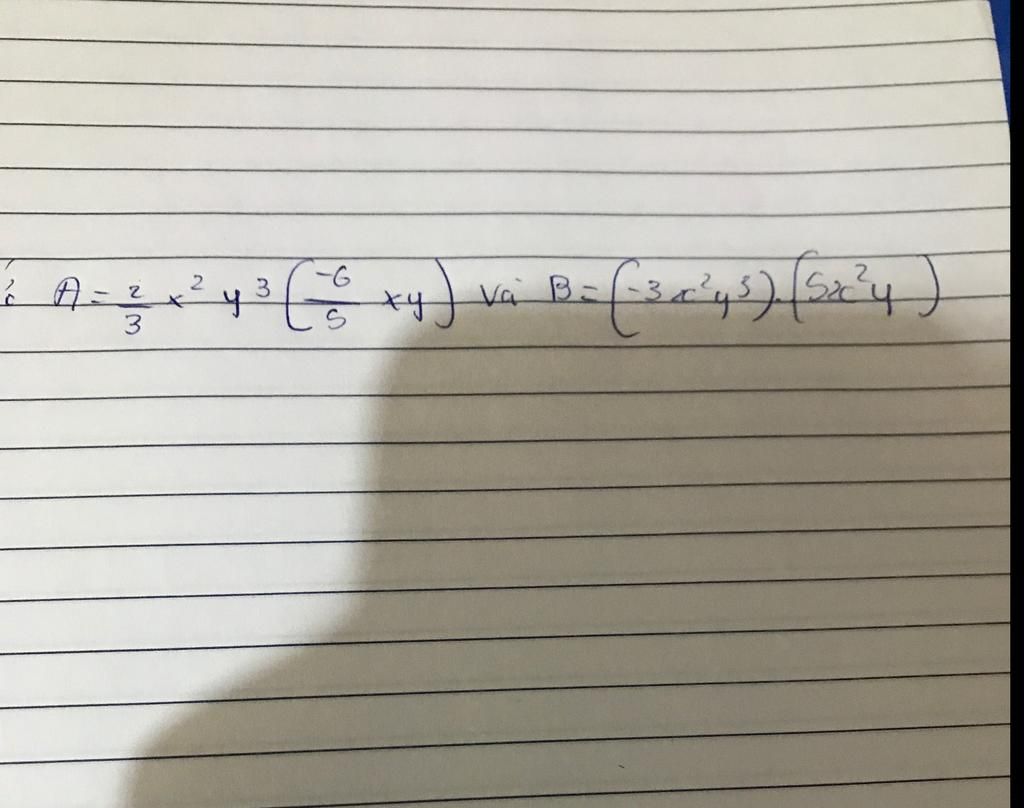 : A = 2/3 x² y³ (-6/5 xy) và B = (-3x²y³).(5x²y)